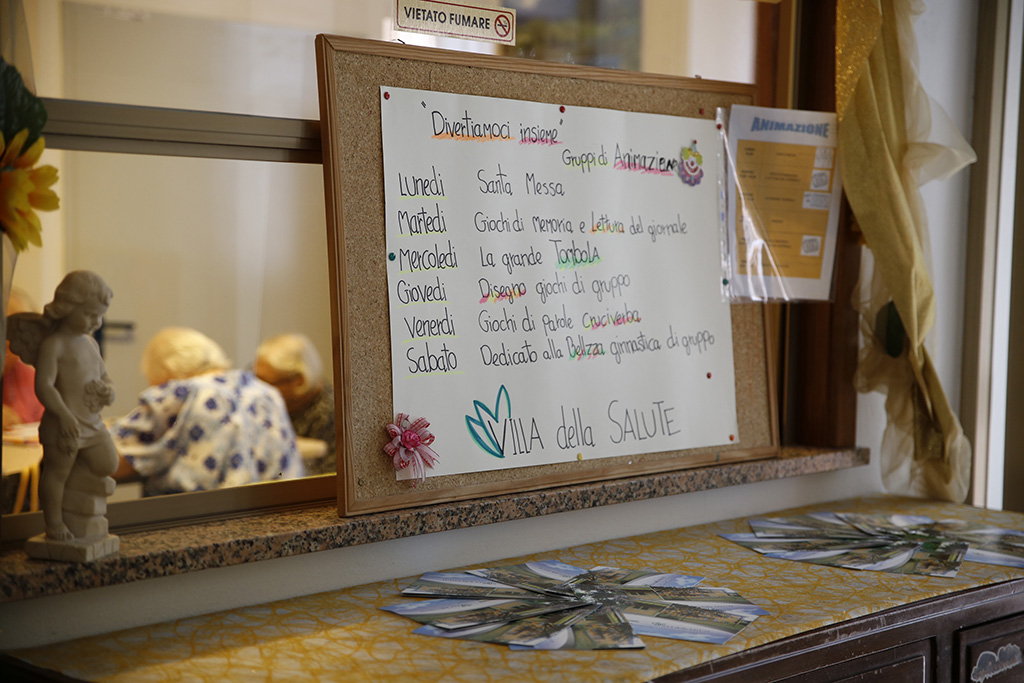 VIETATO FUMARE
"Divertiamoci insieme"
Gruppi di Animazione
Lunedi Santa Messa
Martedi Giochi di Memoria e Lettura del giornale
Mercoledi La grande Tombola
Giovedi Disegno giochi di gruppo
Venerdi Giochi di Parole Cruciverba
Sabato Dedicato alla Bellezza ginnastica di gruppo
VILLA della SALUTE
ANIMAZIONE